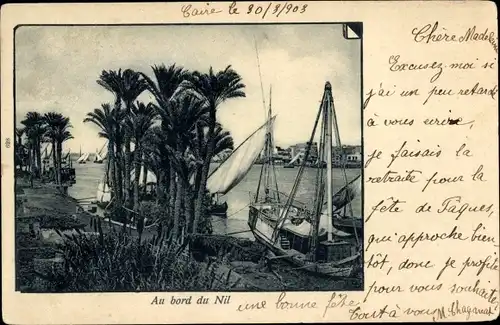 Caire le 30/3/903
Chère Madeleine
Excusez-moi si
j'ai un peu retardé
à vous ecrire,
je faisais la
retraite pour la
fête de Pâques,
qui approche bien
tôt, donc je profite
pour vous souhaiter
une bonne fête
Tout à vous M. Chaganat
Au bord du Nil